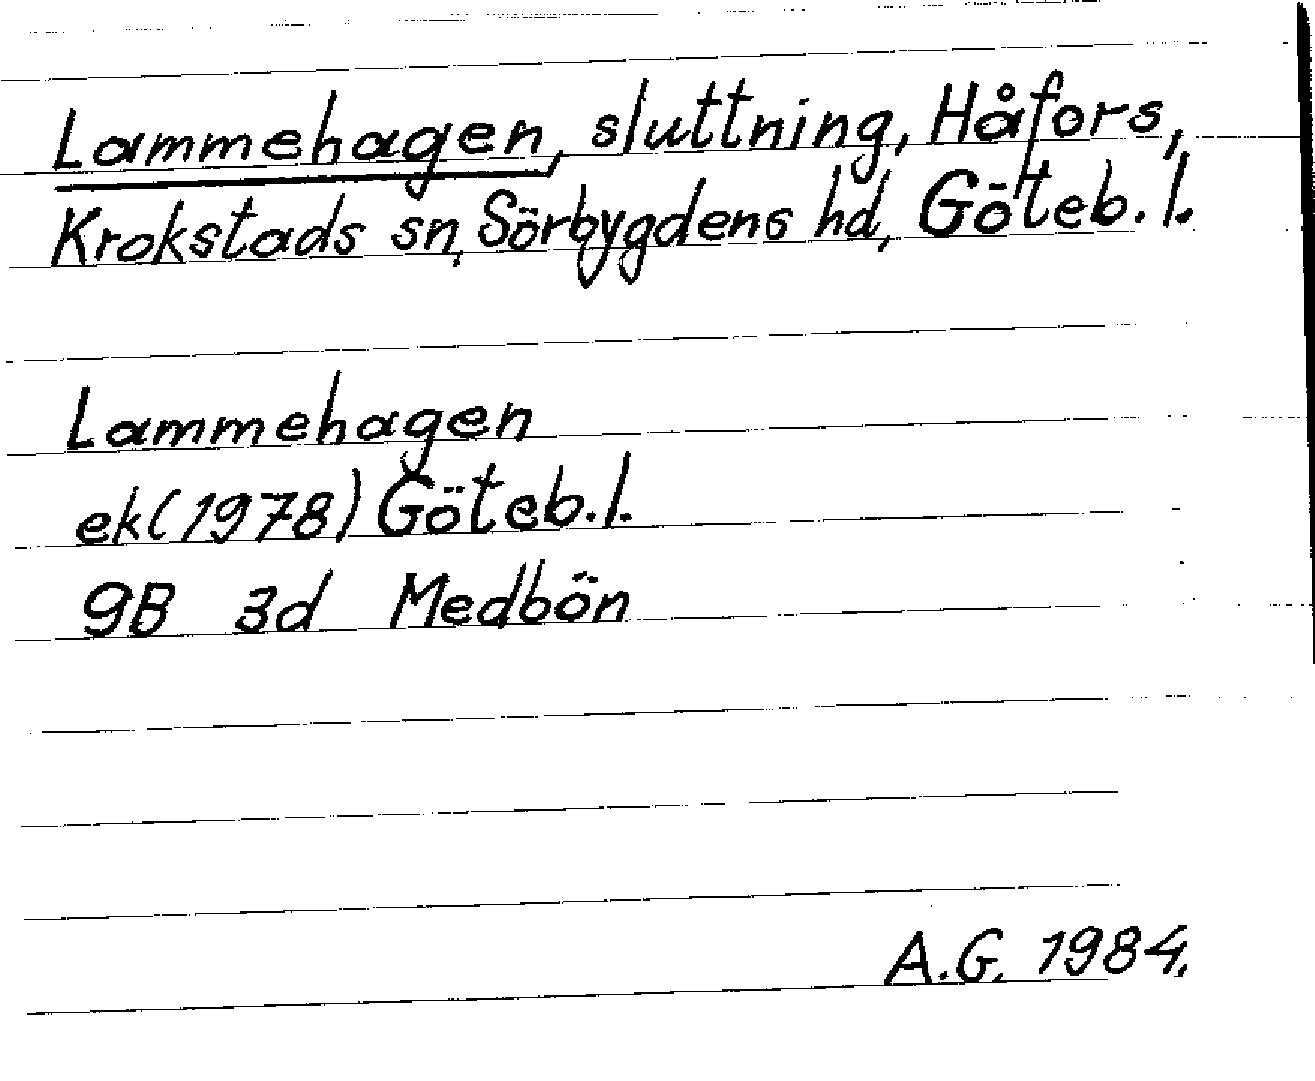 Lammehagen, sluttning, Håfors,
Krokstads sn, Sörbygdens hd, Göteb. l.
Lammehagen
ek (1978) Göteb. l.
9B 3d Medbön
A.G. 1984.